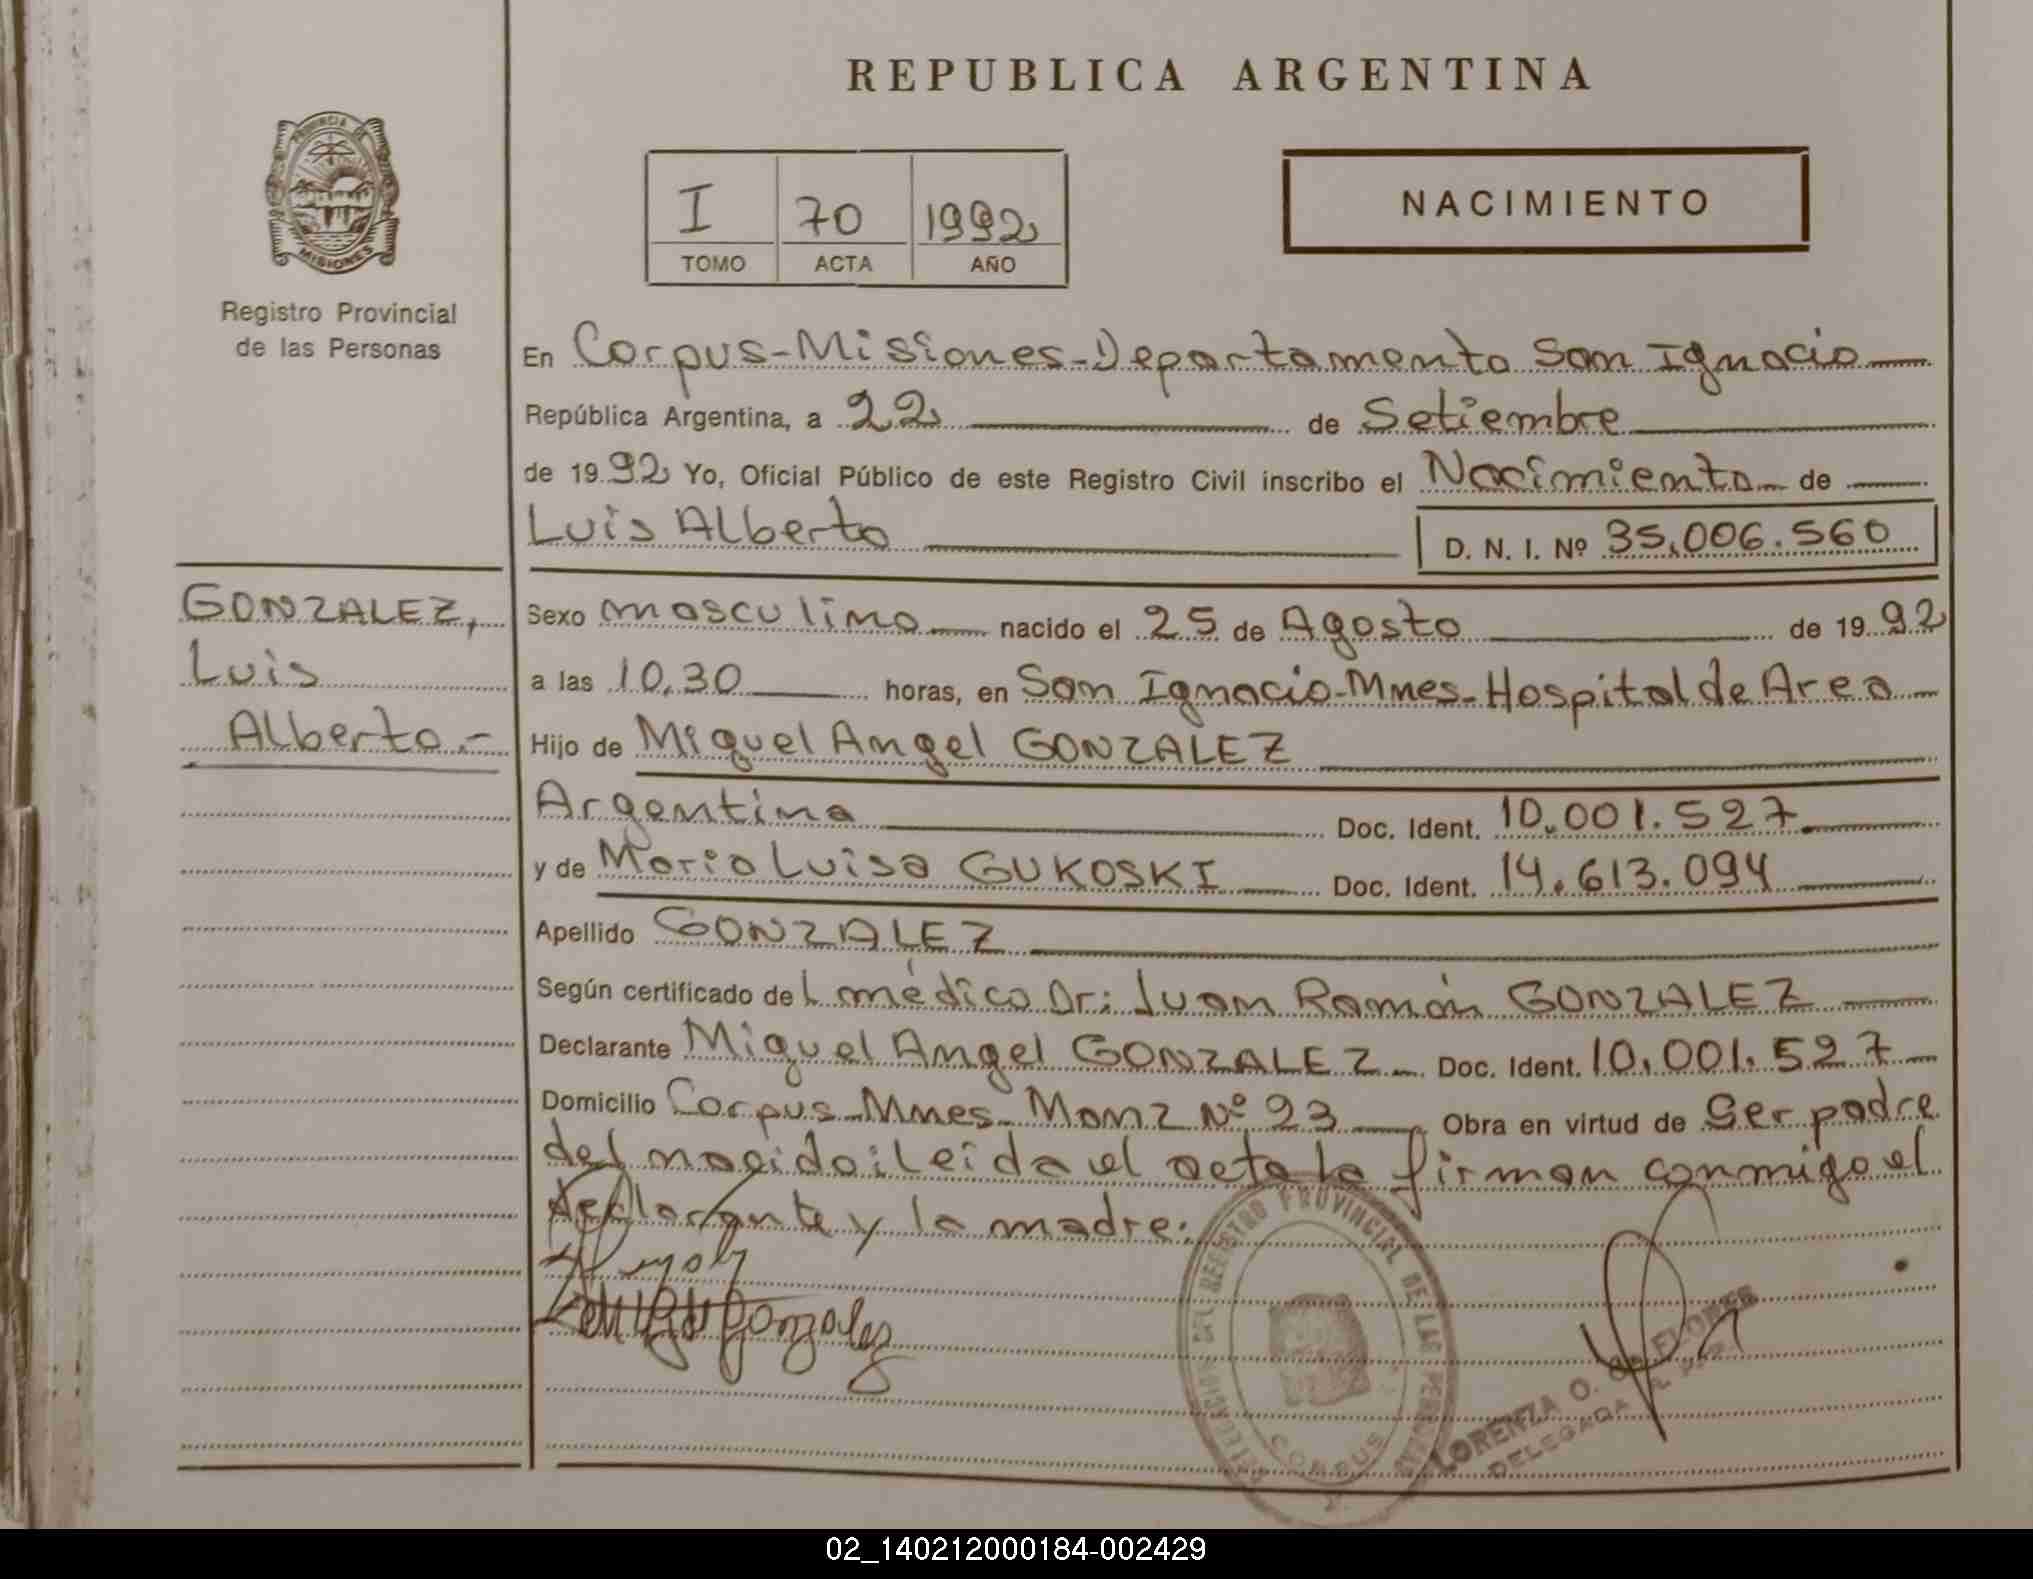 REPUBLICA ARGENTINA
PROVINCIA DE
MISIONES
Registro Provincial
de las Personas
I 70 1992
TOMO ACTA AÑO
NACIMIENTO
En Corpus-Misiones-Departamento San Ignacio
República Argentina, a 22 de Setiembre
de 1992 Yo, Oficial Público de este Registro Civil inscribo el Nacimiento de
Luis Alberto D. N. I. Nº 35.006.560
GONZALEZ,
Luis
Alberto.-
Sexo masculino nacido el 25 de Agosto de 1992
a las 10,30 horas, en San Ignacio-Mnes-Hospital de Area
Hijo de Miguel Angel GONZALEZ
Argentina Doc. Ident. 10.001.527
y de Maria Luisa GUKOSKI Doc. Ident. 14.613.094
Apellido GONZALEZ
Según certificado del médico Dr: Juan Ramón GONZALEZ
Declarante Miguel Angel GONZALEZ Doc. Ident. 10.001.527
Domicilio Corpus-Mnes-Manz Nº 23 Obra en virtud de Ser padre
del nacido; Leida el acta la firman conmigo el
declarante y la madre.
Gonzalez
DELEGACION DEL REGISTRO PROVINCIAL DE LAS PERSONAS
CORPUS
LORENZA O. de FLORES
DELEGADA
02_140212000184-002429